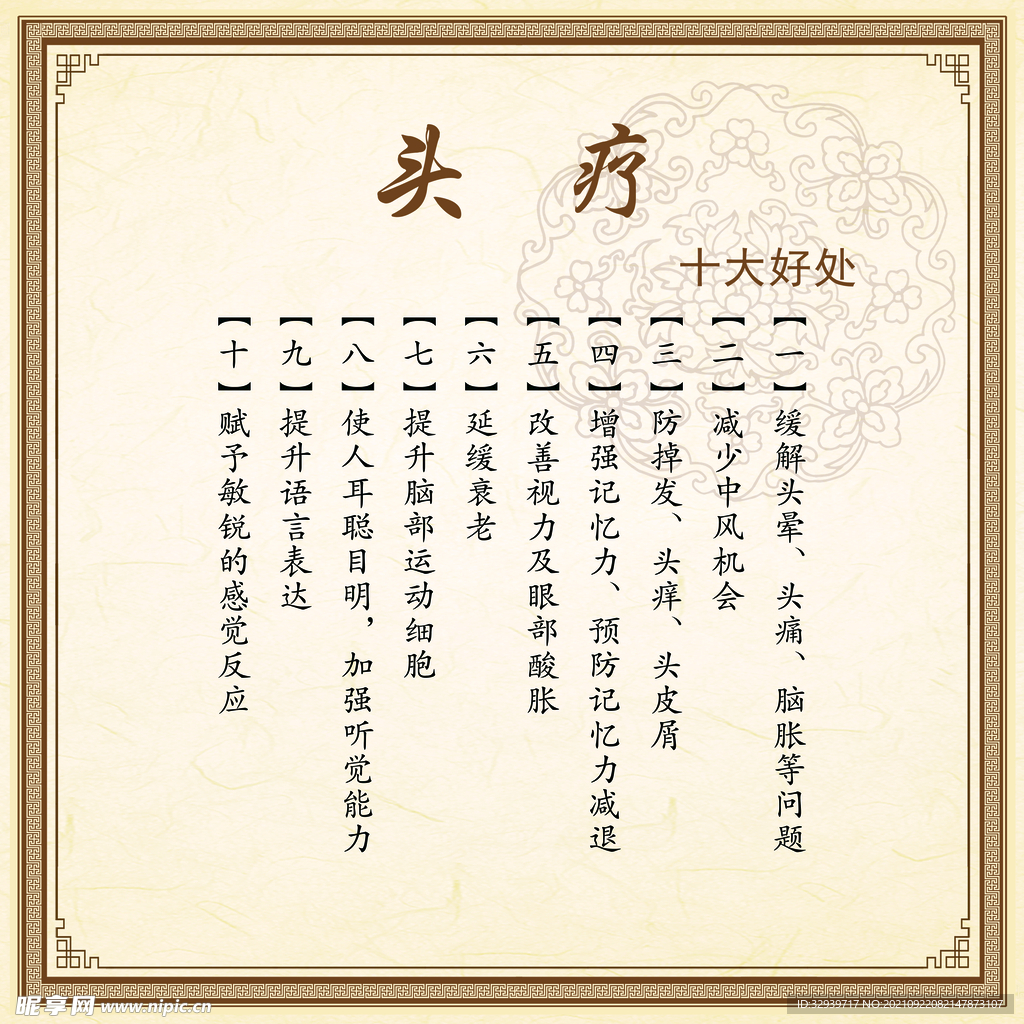 头 疗
十大好处
【一】缓解头晕、头痛、脑胀等问题
【二】减少中风机会
【三】防掉发、头痒、头皮屑
【四】增强记忆力、预防记忆力减退
【五】改善视力及眼部酸胀
【六】延缓衰老
【七】提升脑部运动细胞
【八】使人耳聪目明，加强听觉能力
【九】提升语言表达
【十】赋予敏锐的感觉反应
昵享网 www.nipic.cn
ID:32939717 NO:20210922082147873107